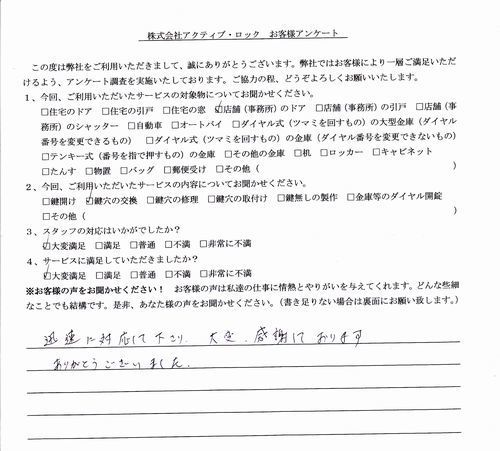 株式会社アクティブ・ロック　お客様アンケート
この度は弊社をご利用いただきまして、誠にありがとうございます。弊社ではお客様により一層ご満足いただ
けるよう、アンケート調査を実施いたしております。ご協力の程、どうぞよろしくお願いいたします。
1、今回、ご利用いただいたサービスの対象物についてお聞かせください。
□住宅のドア　□住宅の引戸　□住宅の窓　☑店舗（事務所）のドア　□店舗（事務所）の引戸　□店舗（事
務所）のシャッター　□自動車　□オートバイ　□ダイヤル式（ツマミを回すもの）の大型金庫（ダイヤル
番号を変更できるもの）　□ダイヤル式（ツマミを回すもの）の金庫（ダイヤル番号を変更できないもの）
□テンキー式（番号を指で押すもの）の金庫　□その他の金庫　□机　□ロッカー　□キャビネット
□たんす　□物置　□バッグ　□郵便受け　□その他（　）
2、今回、ご利用いただいたサービスの内容についてお聞かせください。
□鍵開け　☑鍵穴の交換　□鍵穴の修理　□鍵穴の取付け　□鍵無しの製作　□金庫等のダイヤル開錠
□その他（　）
3、スタッフの対応はいかがでしたか？
☑大変満足　□満足　□普通　□不満　□非常に不満
4、サービスに満足していただきましたか？
☑大変満足　□満足　□普通　□不満　□非常に不満
※お客様の声をお聞かせください！　お客様の声は私達の仕事に情熱とやりがいを与えてくれます。どんな些細
なことでも結構です。是非、あなた様の声をお聞かせください。（書き足りない場合は裏面にお願い致します。）
迅速に対応して下さり、大変、感謝して おります
ありがとうございました。